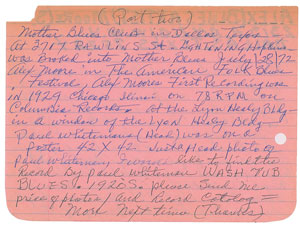 (Part two)
Mother Blues Club in Dallas Texas
At 2717 RAWLINS St. Lightning Hopkins
was Booked into Mother Blues July 28/72
Alex Moore in The American Folk Blues
Festival, Alex Moores First Recording was
in 1929 Chicago 78 RPM on
Columbia Records. at the Lyon Healy Bldg
in a window of the Lyon Healy Bldg
Paul Whitemans (Head) was on a
Poster 42 X 42 Just a Head photo of
Paul Whiteman, I would like to find the
Record By Paul Whiteman WASH TUB
BLUES. 1920S. please Send me
price of photos/ and Record Catolog =
More Next Time (Thanks)